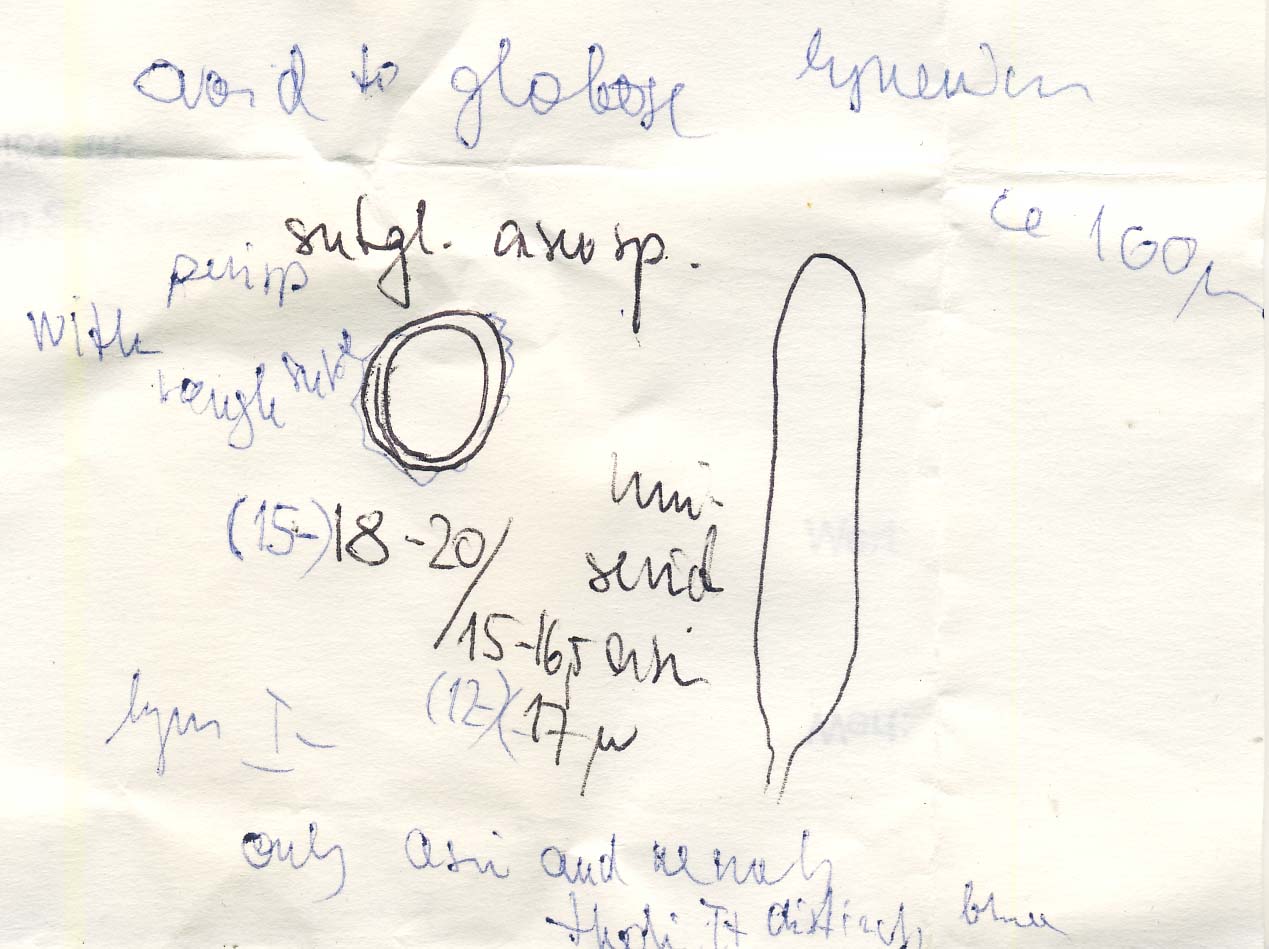 ovoid to globose hymenium
ca 100µ
subgl. ascosp.
perisp
with
rough
(15-)18-20/
15-16,5
(12-)(-17µ
uni-
seriat
asci
hym I-
only asci and
distinctly blue